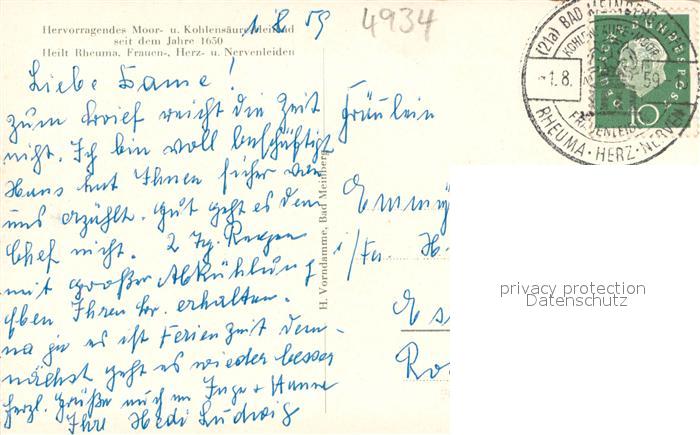 Hervorragendes Moor- u. Kohlensäure-Heilbad
seit dem Jahre 1650
Heilt Rheuma, Frauen-, Herz- u. Nervenleiden
1.8.59
4934
Liebe Dame!
zum Brief reicht die Zeit
nicht. Ich bin voll beschäftigt
Hans hat Ihnen sicher von
uns erzählt. Gut geht es dem
Chef nicht. 2 Tg. Regen
mit großer Abkühlung
eben Ihren Br. erhalten.
na ja es ist Ferienzeit dem-
nächst geht es wieder besser
herzl. Grüße auch von Inge + Hanne
Ihre Hedi Ludwig
H. Vorndamme, Bad Meinberg
Fräulein
Emmy
i/Fa. H.
Es
Ro
(21a) BAD MEINBERG
-1.8. 59
FRAUENLEID
RHEUMA · HERZ · NERVEN
10
privacy protection
Datenschutz